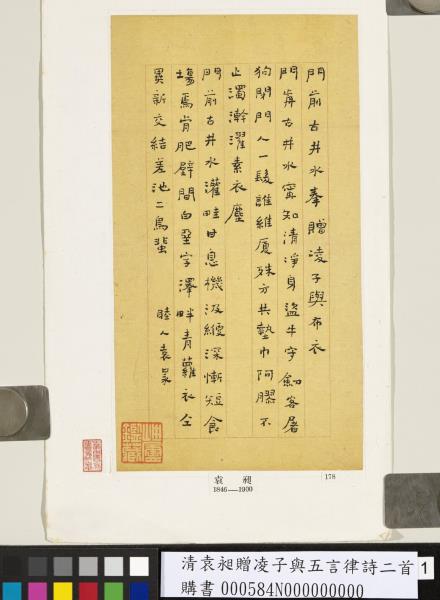 門前古井水奉贈凌子與布衣
門前古井水甯知清淨身盜牛字劍客屠
狗閉門人一髮誰維廈殊方共墊巾阿膠不
止濁澣濯素衣塵
門前古井水灌畦甘息機汲綆深慚短食
場焉肯肥壁間白堊字澤畔青蘿衣仝
異新交結差池二鳥蜚
睦人袁昶
袁 昶
1846—1900
178
清袁昶贈凌子與五言律詩二首
購書 000584N000000000
1